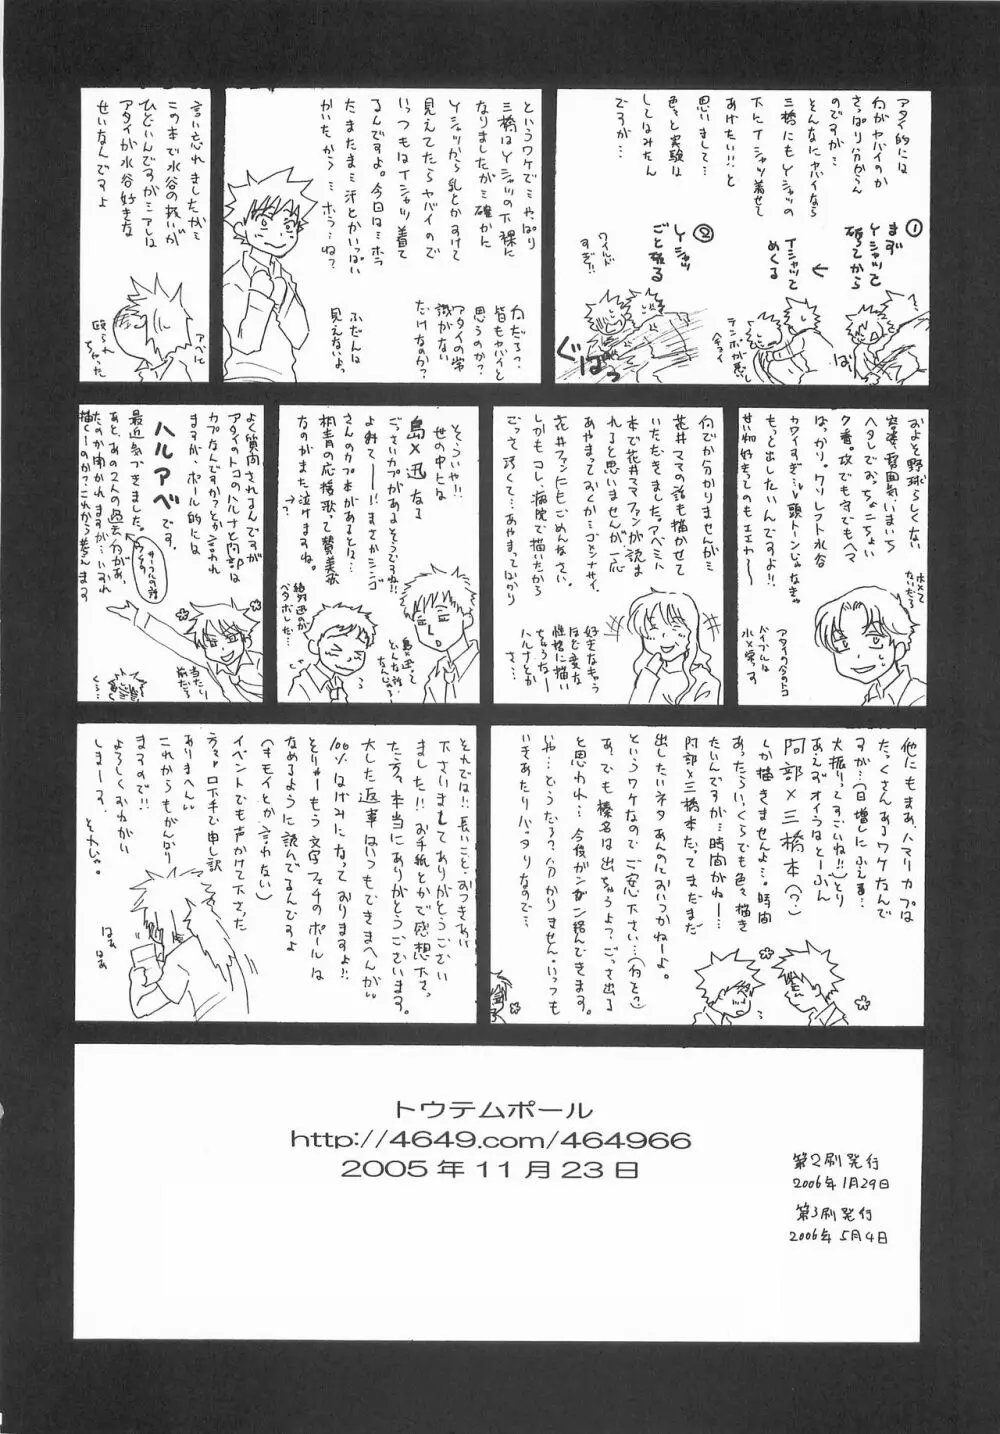 アタイ的には
何がヤバイのか
さっぱり分からん
のですが…
そんなにヤバイなら
三橋にもYシャツの
下にTシャツ着せて
あげたい!!と
思いまして…
色々と実験は
してはみたん
ですが…
①
まず
Yシャツを
破ってから
Tシャツを
めくる
②
Yシャツ
ごと破る
ワイルド
すぎ!!
テンポが悪い
ぐばっ
というワケで…やっぱり
三橋はYシャツの下裸に
なりましたが…確かに
Yシャツから乳とかすけて
見えてたらヤバイので
いっつもはTシャツ着て
るんですよ。今回は…ホラ
たまたま…汗とかいっぱい
かいたから…ホラ…ね?
何だろう?
皆もヤバイと
思うのか?
アタイの常
識がない
だけなのか?
ふだんは
見えないよ。
言い忘れましたが…
この本で水谷の扱いが
ひどいんですが…アレは
アタイが水谷好きな
せいなんですよ
アベに
殴られ
ちゃった
およそ野球らしくない
容姿・雰囲気・いまいち
ヘタレでおっちょこちょい
7番。攻でも守でもヘマ
ばっかり。クソレフト水谷
カワイすぎ…頭トーンじゃなきゃ
もっと出したいんですよ!!
せい物好きってのもエエわ〜
水×栄って
ないだろ
アタイの今のトコ
バイブルは
水×栄っす
何でか分かりませんが…
花井ママの話も描かせて
いただきました。アベミハ
本で花井ママファンが読ま
れるとも思いませんが一応
あやまっておくか…ゴメンナサイ。
花井ファンにもごめんなさい。
しかもコレ、病院で描いたから
ごっさ汚くて…あやまってばっかり
好きなキャラ
ほど変な
性格に描い
ちゃうなー
ハルナとか
さ…
そそういや!!
世の中には
島×迅な
ごっさいカプがあるそうですね!!
よみてー!!まさかシンゴ
さんのカプ本があるとは…
桐青の応援歌って賛美歌
なのがまた泣けますね。
島×迅って
どんな話
なんじゃ
絶対迅のが
ベタボレした…
よく質問されるんですが
アタイのトコのハルナと阿部は
カプなんですか?とか言われ
ますが、ポール的には
ハルアベです。
最近気づきました。
あと、あの2人の過去分があっ
たのか聞かれますが…いずれ
描くーのかってこれから考えます
サークルの話
当たり
前だろ
くそ…
他にもまあ、ハマリカプは
たっくさんあるワケなんで
すが…(日増しにふえる…
大振りってすごいね!!)とり
あえずオイラはとーぶん
阿部×三橋本(?)
しか描きませんよ…。時間
あったらいっくらでも色々描き
たいんですが…時間がねー…
阿部×三橋本だってまだまだ
出したいネタあんのにおいつかねーよ。
というワケなのでご安心下さい…(何を?)
あ、でも榛名は出ちゃうよ?ごっさ出る
と思われ…今後がンガン絡んできます。
いや…どうだろ?分かりません。いっつも
いきあたりバッタリなので…
それでは!!長いこと、おつきあい
下さいましてありがとうござい
ました!!お手紙とかで感想下さっ
た方々、本当にありがとうございます。
大した返事はいつもできまへんが
100%はげみになっておりますよ!!
そりゃーもう文字フェチのポールは
なめるように読んでるんですよ
(キモイとか言わない)
イベントでも声かけて下さった
方々、口下手で申し訳
ありまへん
これからもがんばり
まするので!!
よろしくおねがい
しまーす。それじゃ。
はぁ
はぁ
トウテムポール
http://4649.com/464966
2005年11月23日
第2刷発行
2006年1月29日
第3刷発行
2006年5月4日